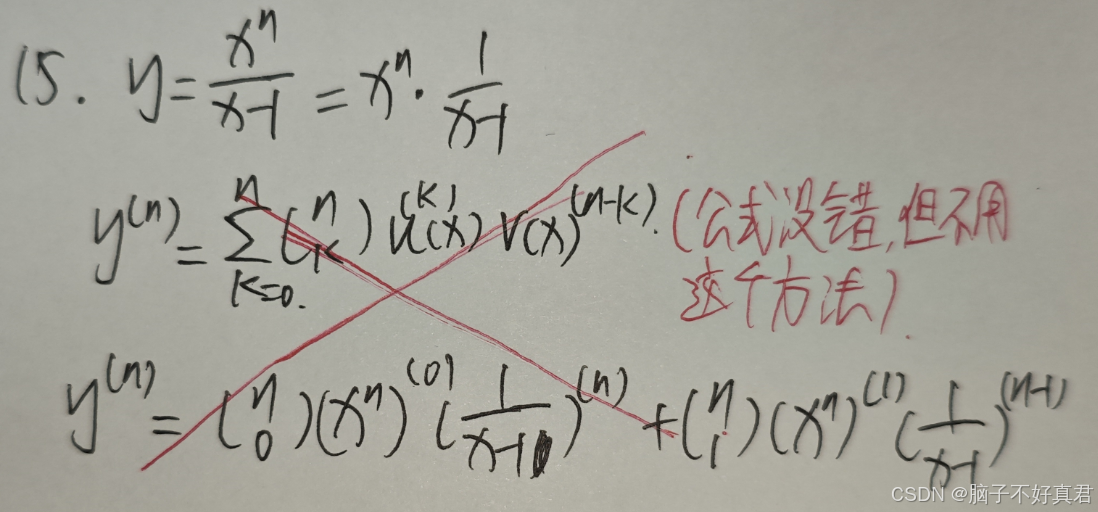 15. y = x^n/(x-1) = x^n · 1/(x-1)
y^(n) = Σ_{k=0}^{n} (n k) u(x)^(k) v(x)^(n-k). (公式没错,但不用
这个方法).
y^(n) = (n 0)(x^n)^(0) (1/(x-1))^(n) + (n 1)(x^n)^(1) (1/(x-1))^(n-1)
CSDN @脑子不好真君